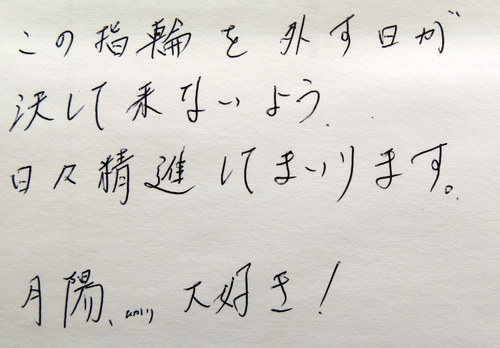 この指輪を外す日が
決して来ないよう
日々精進してまいります。
月陽、大好き!